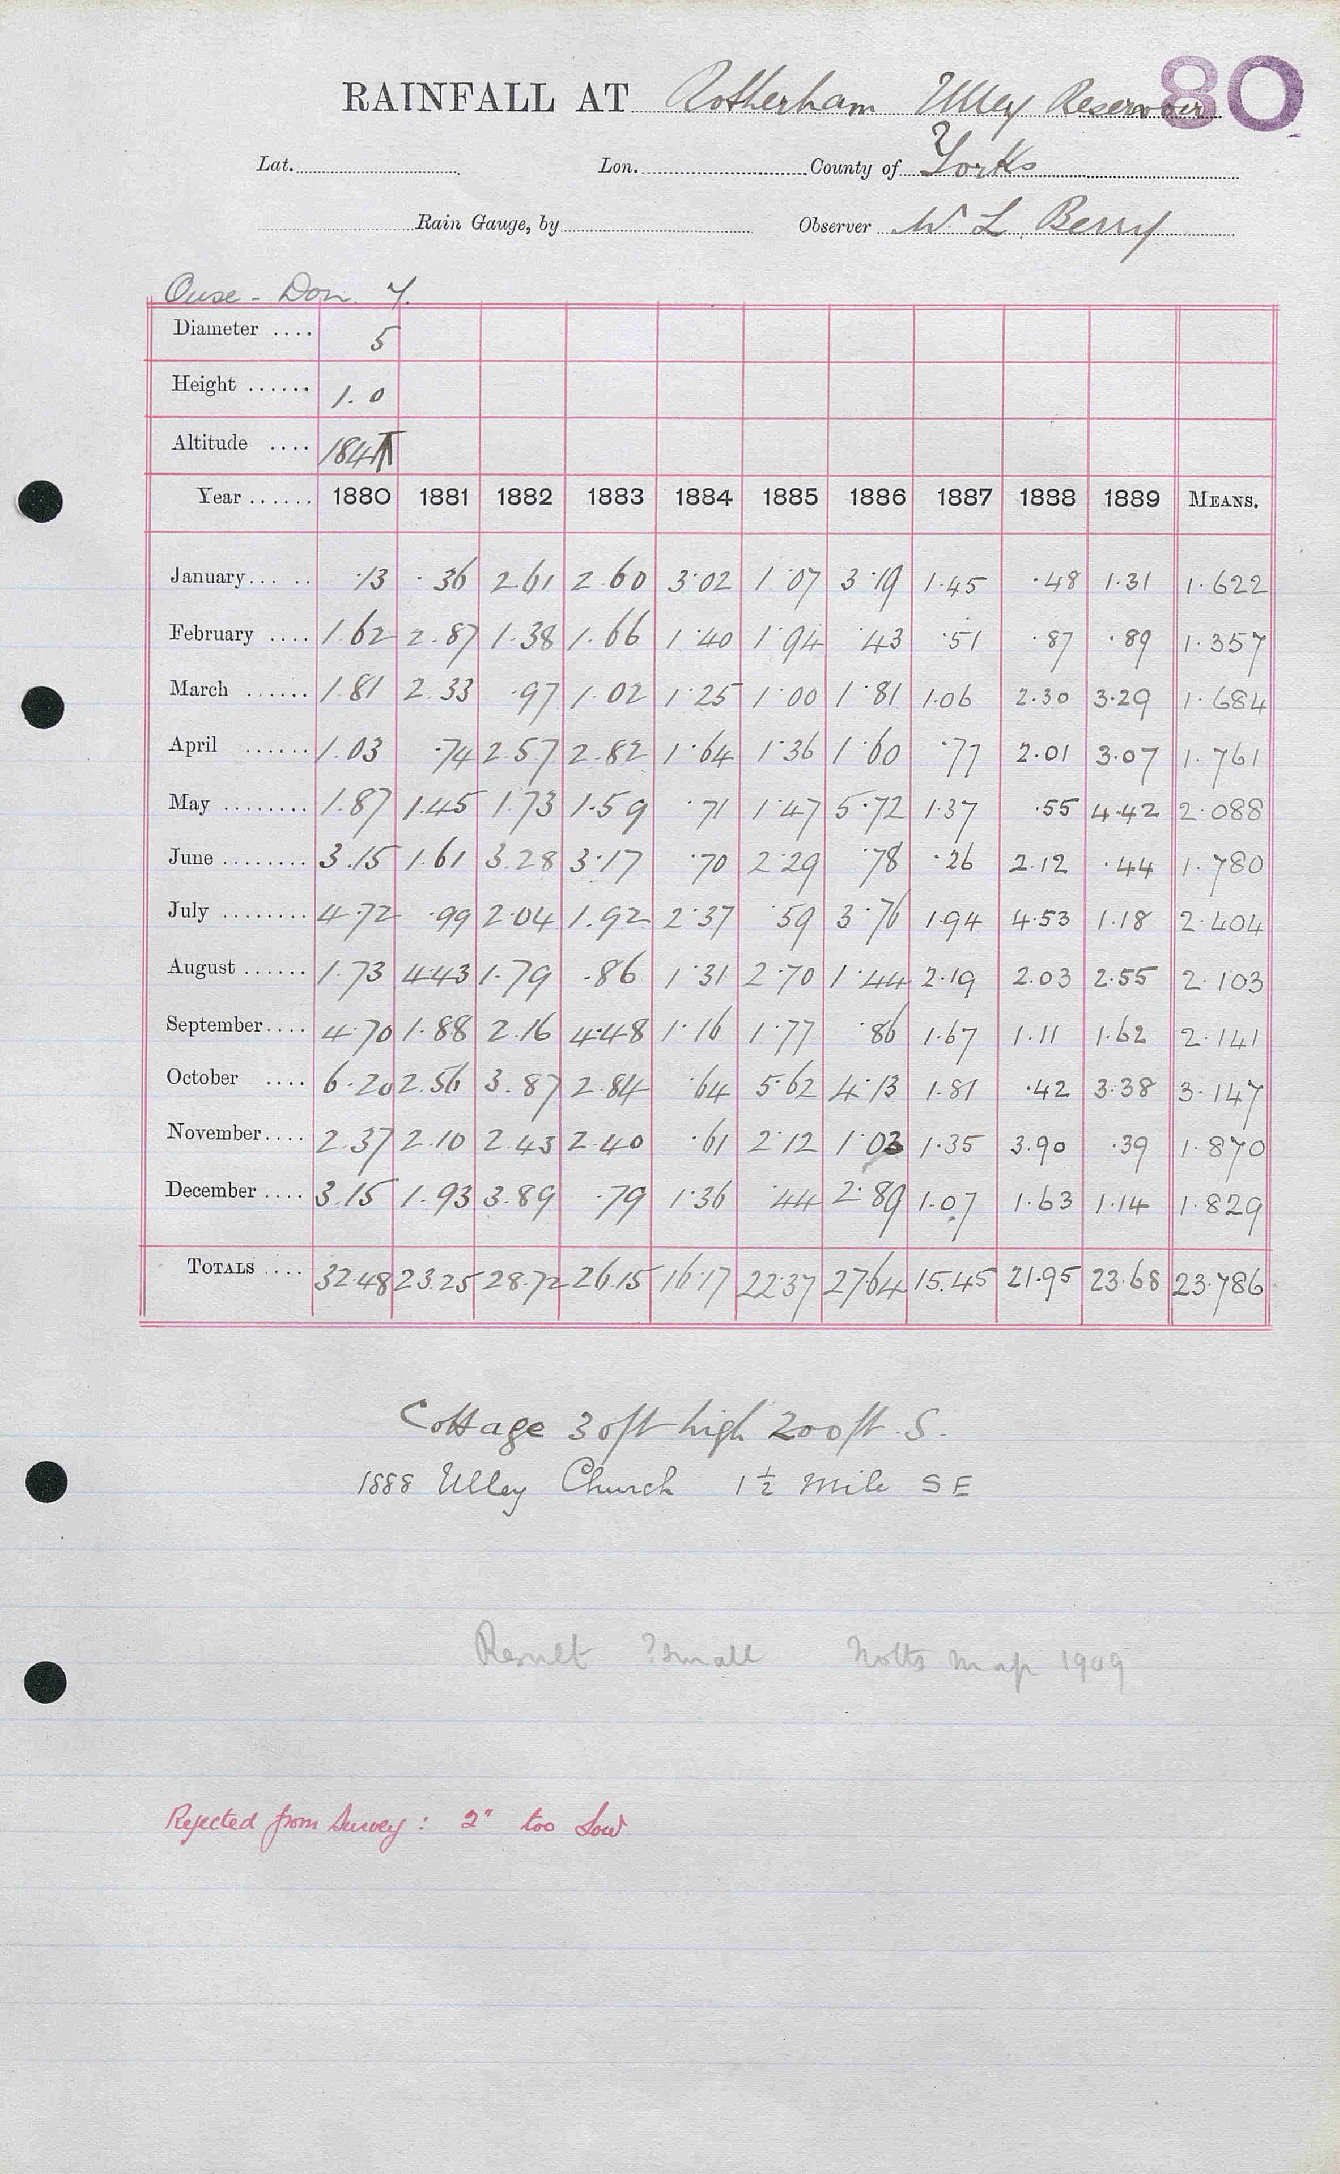 80
RAINFALL AT Rotherham Ulley Reservoir
Lat. Lon. County of Yorks
Rain Gauge, by Observer W L Berry
Ouse - Don Y.
Diameter .... 5
Height ...... 1.0
Altitude .... 184 T
Year ...... 1880 1881 1882 1883 1884 1885 1886 1887 1888 1889 MEANS.
January..... .13 .36 2.61 2.60 3.02 1.07 3.19 1.45 .48 1.31 1.622
February .... 1.62 2.87 1.38 1.66 1.40 1.94 .43 .51 .87 .89 1.357
March ...... 1.81 2.33 .97 1.02 1.25 1.00 1.81 1.06 2.30 3.29 1.684
April ...... 1.03 .74 2.57 2.82 1.64 1.36 1.60 .77 2.01 3.07 1.761
May ........ 1.87 1.45 1.73 1.59 .71 1.47 5.72 1.37 .55 4.42 2.088
June ........ 3.15 1.61 3.28 3.17 .70 2.29 .78 .26 2.12 .44 1.780
July ........ 4.72 .99 2.04 1.92 2.37 .59 3.76 1.94 4.53 1.18 2.404
August ...... 1.73 4.43 1.79 .86 1.31 2.70 1.44 2.19 2.03 2.55 2.103
September.... 4.70 1.88 2.16 4.48 1.16 1.77 .86 1.67 1.11 1.62 2.141
October .... 6.20 2.56 3.87 2.84 .64 5.62 4.13 1.81 .42 3.38 3.147
November.... 2.37 2.10 2.43 2.40 .61 2.12 1.03 1.35 3.90 .39 1.870
December .... 3.15 1.93 3.89 .79 1.36 .44 2.89 1.07 1.63 1.14 1.829
TOTALS .... 32.48 23.25 28.72 26.15 16.17 22.37 27.64 15.45 21.95 23.68 23.786
Cottage 30ft high 200ft S.
1888 Ulley Church 1½ mile SE
Result ? small Notts Map 1909
Rejected from Survey : 2" too low